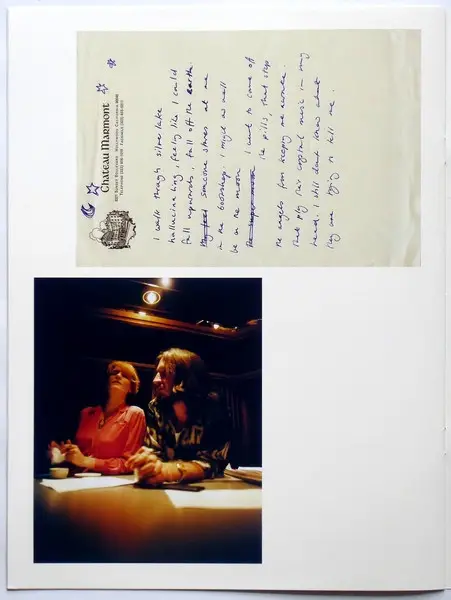 Chateau Marmont
8221 Sunset Boulevard, Hollywood, California 90046
I walk through silverlake
hallucinating, feeling like I could
fall upwards, fall off the earth.
someone stares at me
in the bookshop. I might as well
be on the moon. I want to come off
the pills, that stop
the angels from keeping me awake.
that play their crystal music in my
head. I still dont know what
they are trying to tell me.